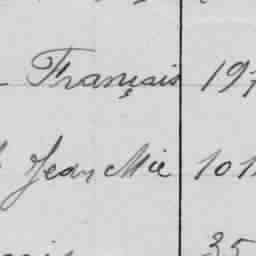 Français 197
Jean Mie 101
35